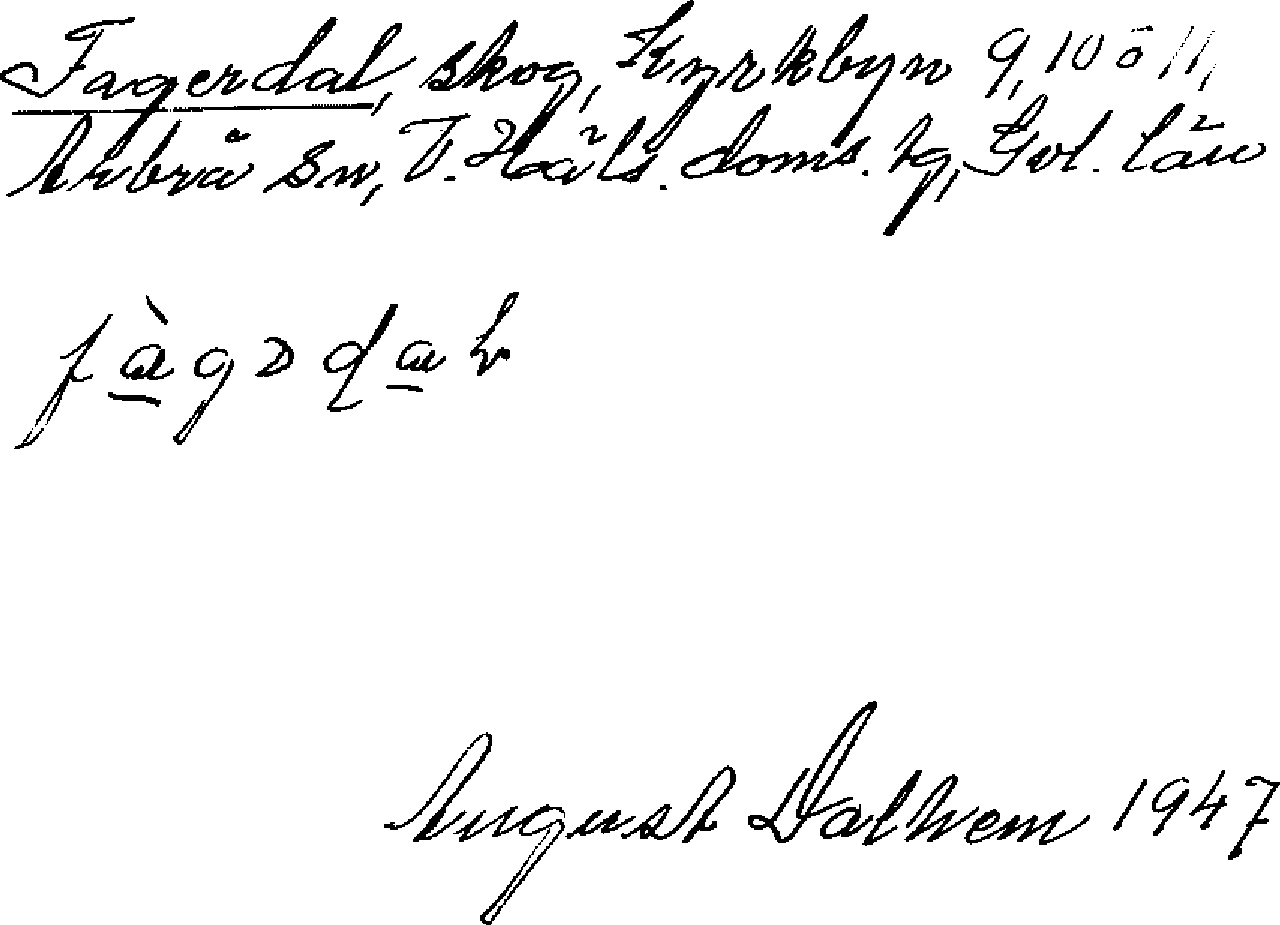 Fagerdal, skog, Kyrkbyn 9, 10 o 11,
Arbrå sn, V. Häls. doms. tg, Gvl. län
fàgəɖaɫ
August Dalhem 1947